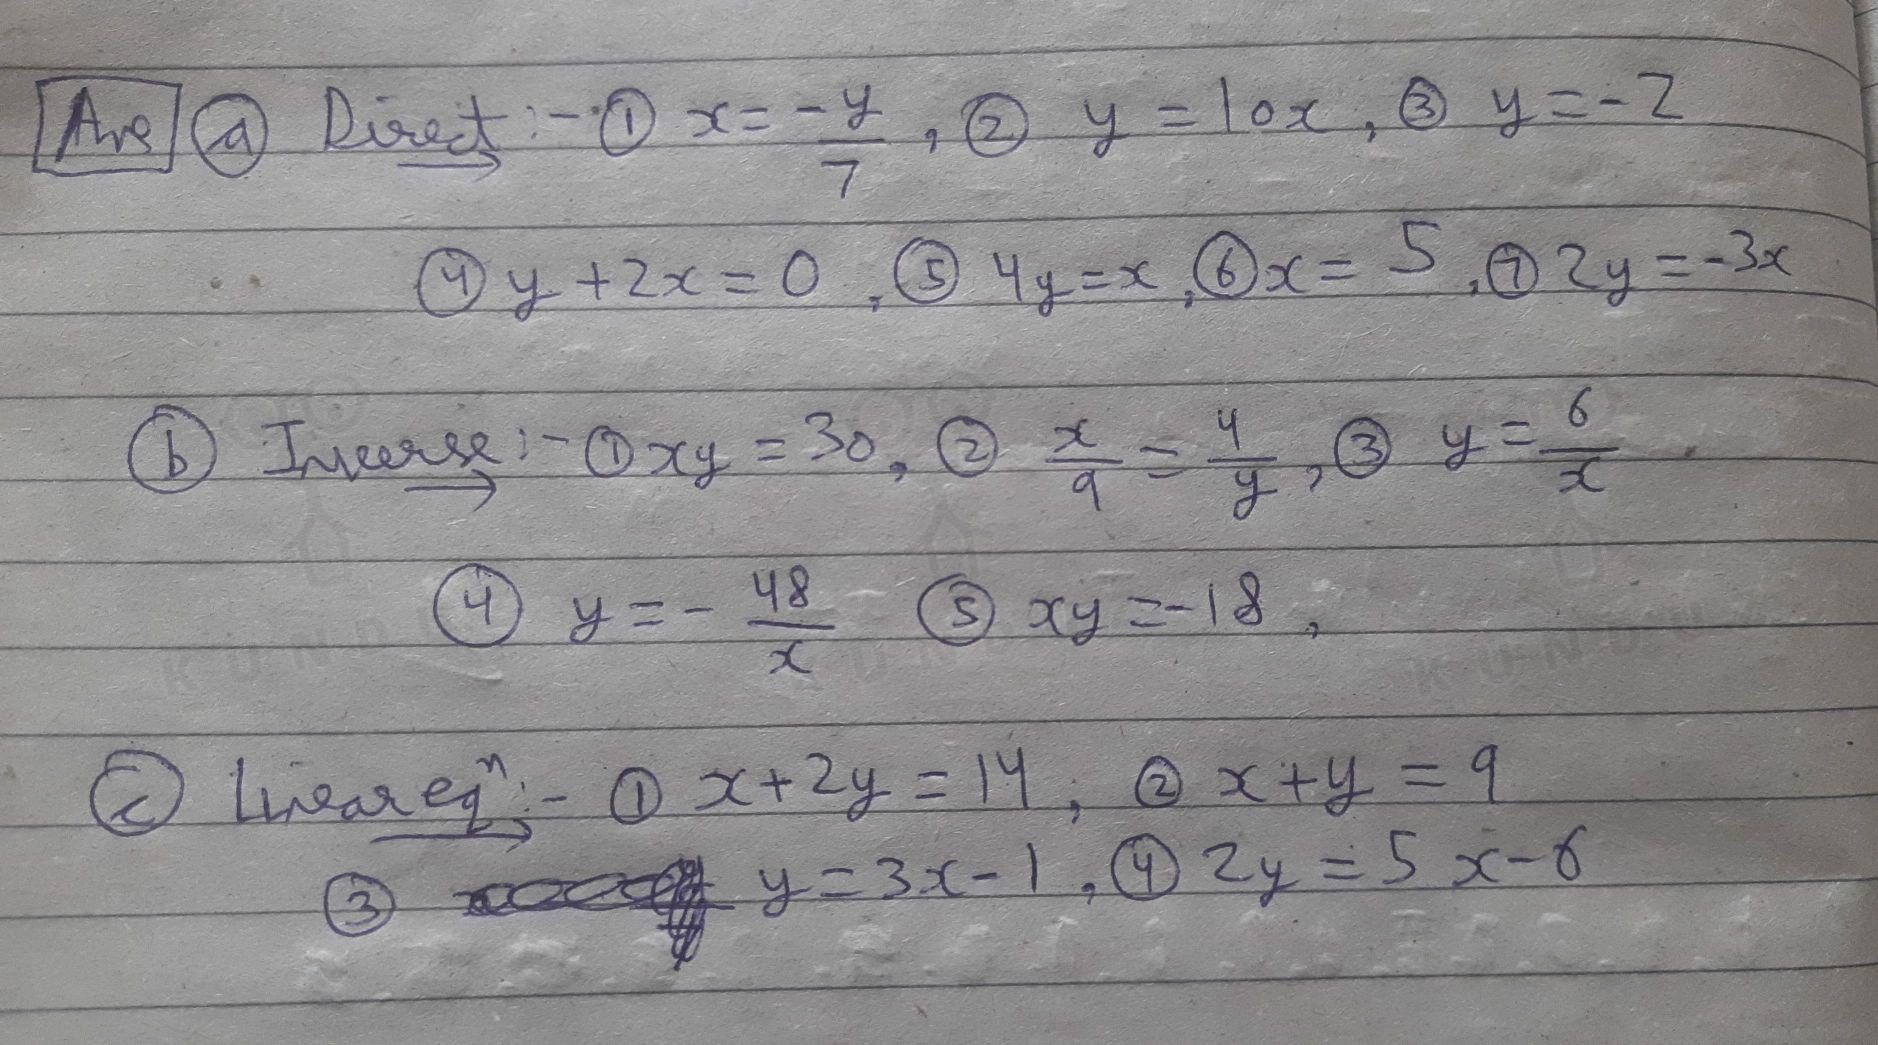 Ans (a) Direct :- ① x = -y/7 , ② y = 10x , ③ y = -2
④ y + 2x = 0 , ⑤ 4y = x , ⑥ x = 5 , ⑦ 2y = -3x
(b) Inverse :- ① xy = 30 , ② x/9 = 4/y , ③ y = 6/x
④ y = - 48/x ⑤ xy = -18 ,
(c) Linear eqⁿ :- ① x + 2y = 14 , ② x + y = 9
③ y = 3x - 1 , ④ 2y = 5x - 6